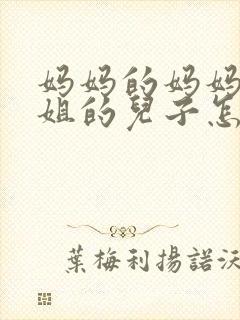 妈妈的妈妈
姐的兒子怎
葉梅利揚諾沃